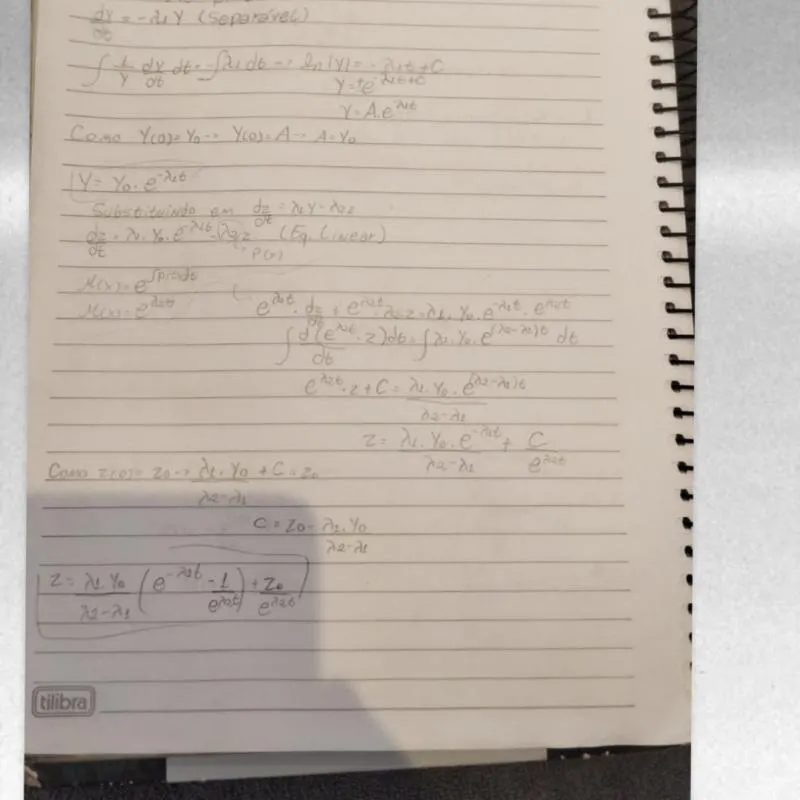 dY/dt = -λ1Y (Separável)
∫ 1/Y dY/dt dt = -∫λ1 dt → ln|Y| = -λ1t + C
Y = ±e^(-λ1t+C)
Y = A.e^(-λ1t)
Como Y(0) = Y0 → Y(0) = A → A = Y0
Y = Y0.e^(-λ1t)
Substituindo em dz/dt = λ1Y - λ2z
dz/dt = λ1.Y0.e^(-λ1t) - λ2z (Eq. Linear)
P(x)
M(x) = e^(∫p(x)dt)
M(x) = e^(λ2t)
e^(λ2t).dz/dt + e^(λ2t).λ2.z = λ1.Y0.e^(-λ1t).e^(λ2t)
∫ d/dt (e^(λ2t).z)dt = ∫λ1.Y0.e^((λ2-λ1)t) dt
e^(λ2t).z + C = λ1.Y0.e^((λ2-λ1)t) / λ2-λ1
z = λ1.Y0.e^(-λ1t) / λ2-λ1 + C / e^(λ2t)
Como z(0) = z0 → λ1.Y0 / λ2-λ1 + C = z0
C = z0 - λ1.Y0 / λ2-λ1
z = λ1.Y0 / λ2-λ1 (e^(-λ1t) - 1/e^(λ2t)) + z0/e^(λ2t)
tilibra